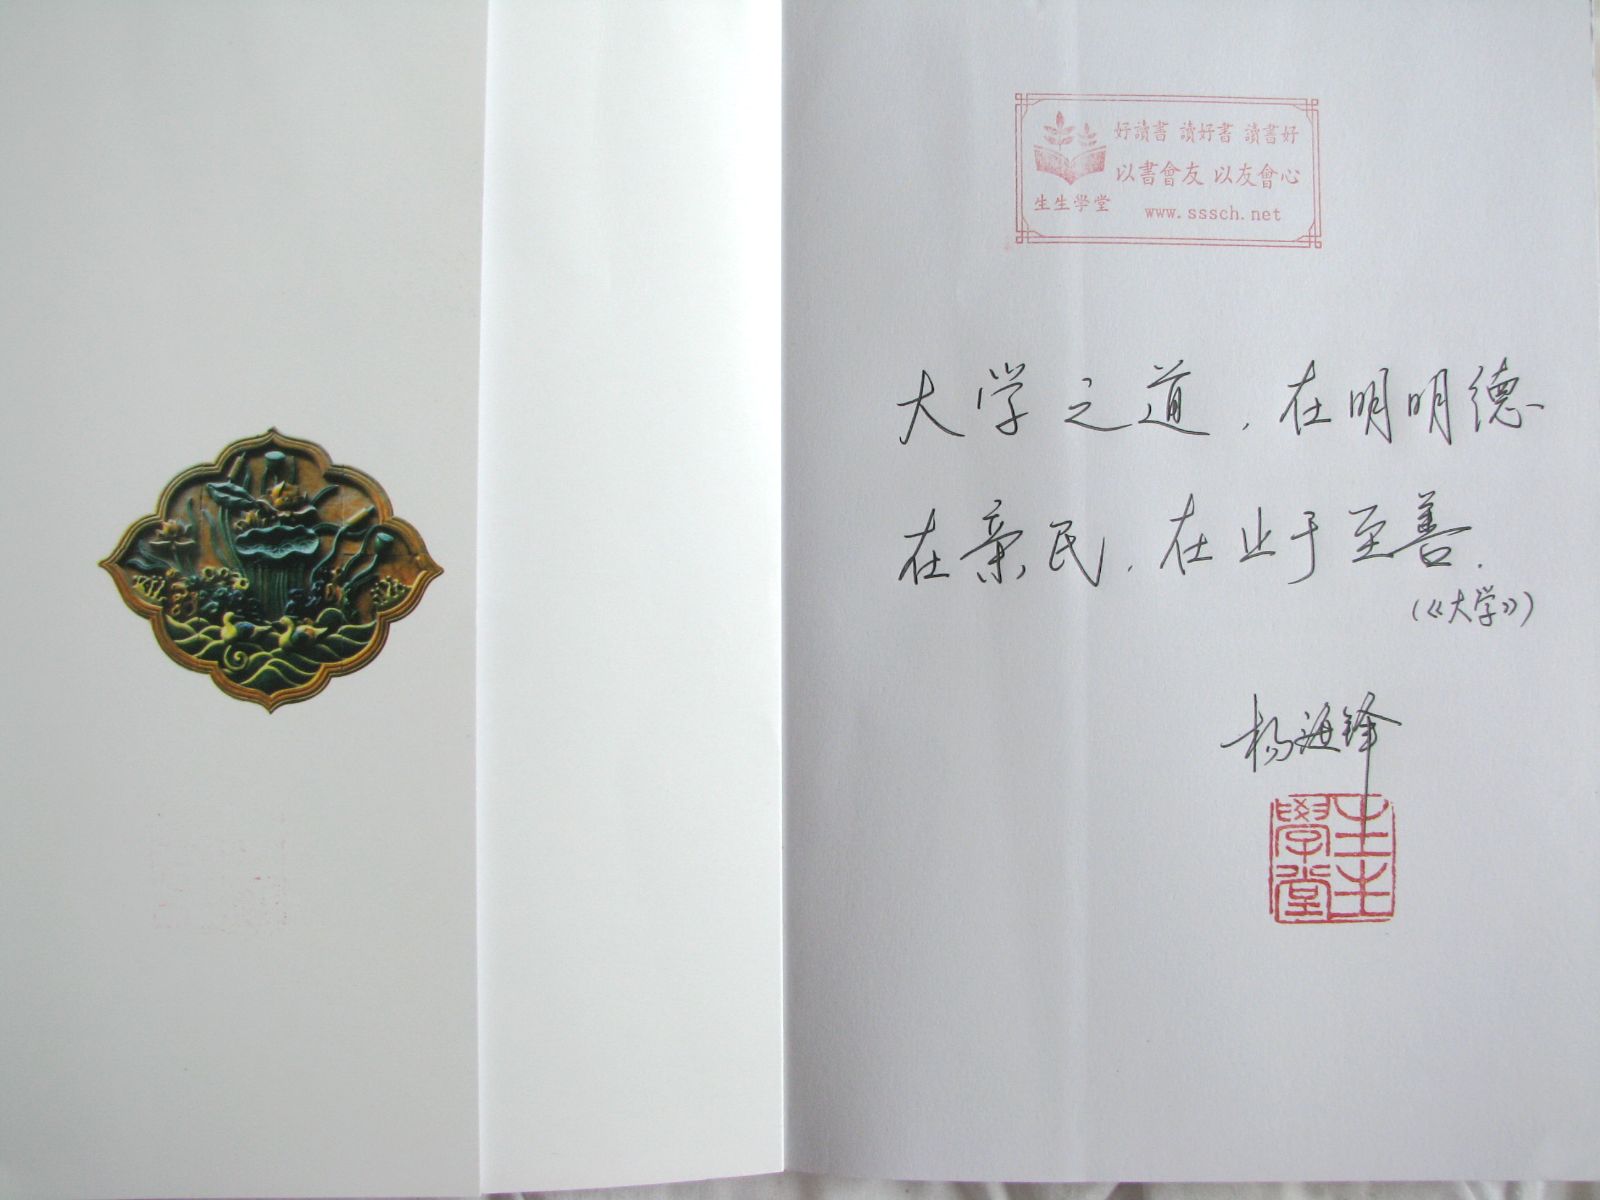 好讀書 讀好書 讀書好
以書會友 以友會心
生生學堂 www.sssch.net
大学之道，在明明德
在亲民，在止于至善．
（《大学》）
杨海锋
生生學堂